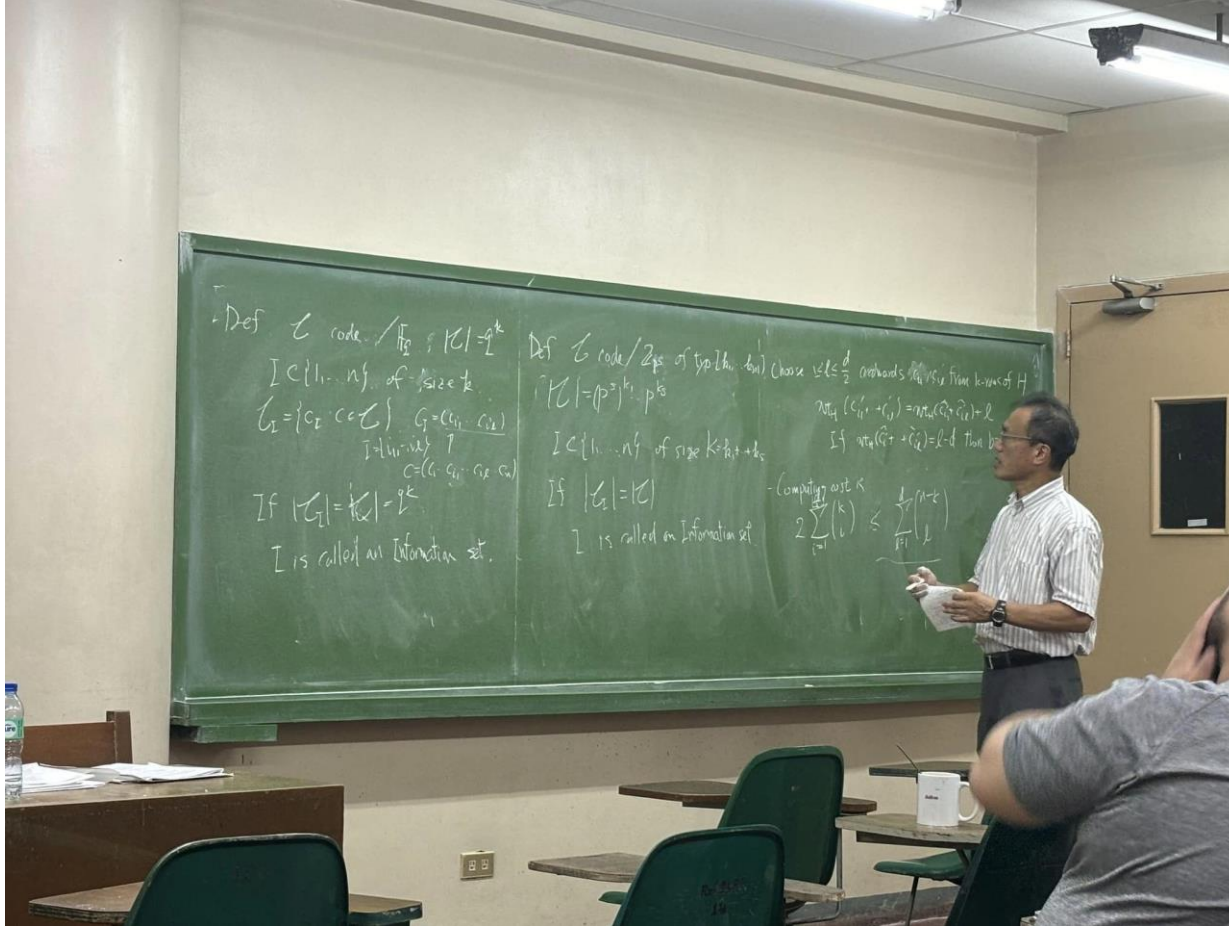 Def 𝒞 code /𝔽q , |𝒞| = q^k
I ⊂ {1, ... n} of size k
𝒞_I = {c_I : c ∈ 𝒞} c_I = (c_i1 ... c_ik)
I = {i1, ... ik} ↑
c = (c_1 ... c_i1 ... c_ik ... c_n)
If |𝒞_I| = |𝒞| = q^k
I is called an Information set.
Def 𝒞 code / Z_p^s of type [k1, ...
|𝒞| = (p^s)^k1 ... p^ks
I ⊂ {1, ... n} of size K = k1 + ... + ks
If |𝒞_I| = |𝒞|
I is called an Information set.
Choose 1 ≤ l ≤ d/2 from k-rows of H
If = l-d then
- Computing cost
2 ∑_{i=1} (k i) ≤ ∑_{i=1}^{d} (n-k l)